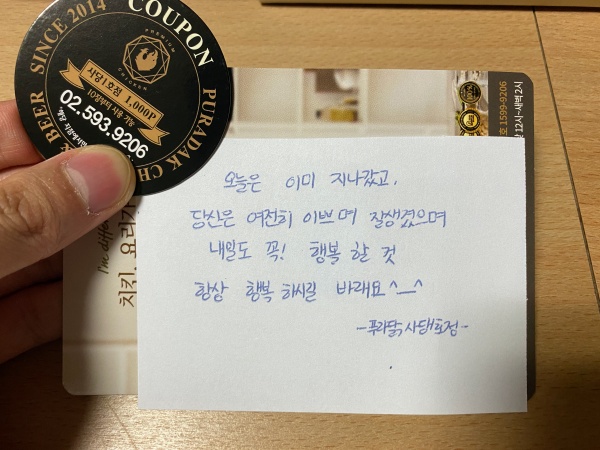 SINCE 2014
COUPON
PURADAK CH
& BEER
PREMIUM
CHICKEN
사당1호점 1,000P
10장부터 사용 가능
02.593.9206
I'm diffe
치킨, 요리가
1599-9206
12시~새벽2시
오늘은 이미 지나갔고,
당신은 여전히 이쁘며 잘생겼으며
내일도 꼭! 행복 할 것
항상 행복 하시길 바래요^_^
-푸라닭 사당1호점-